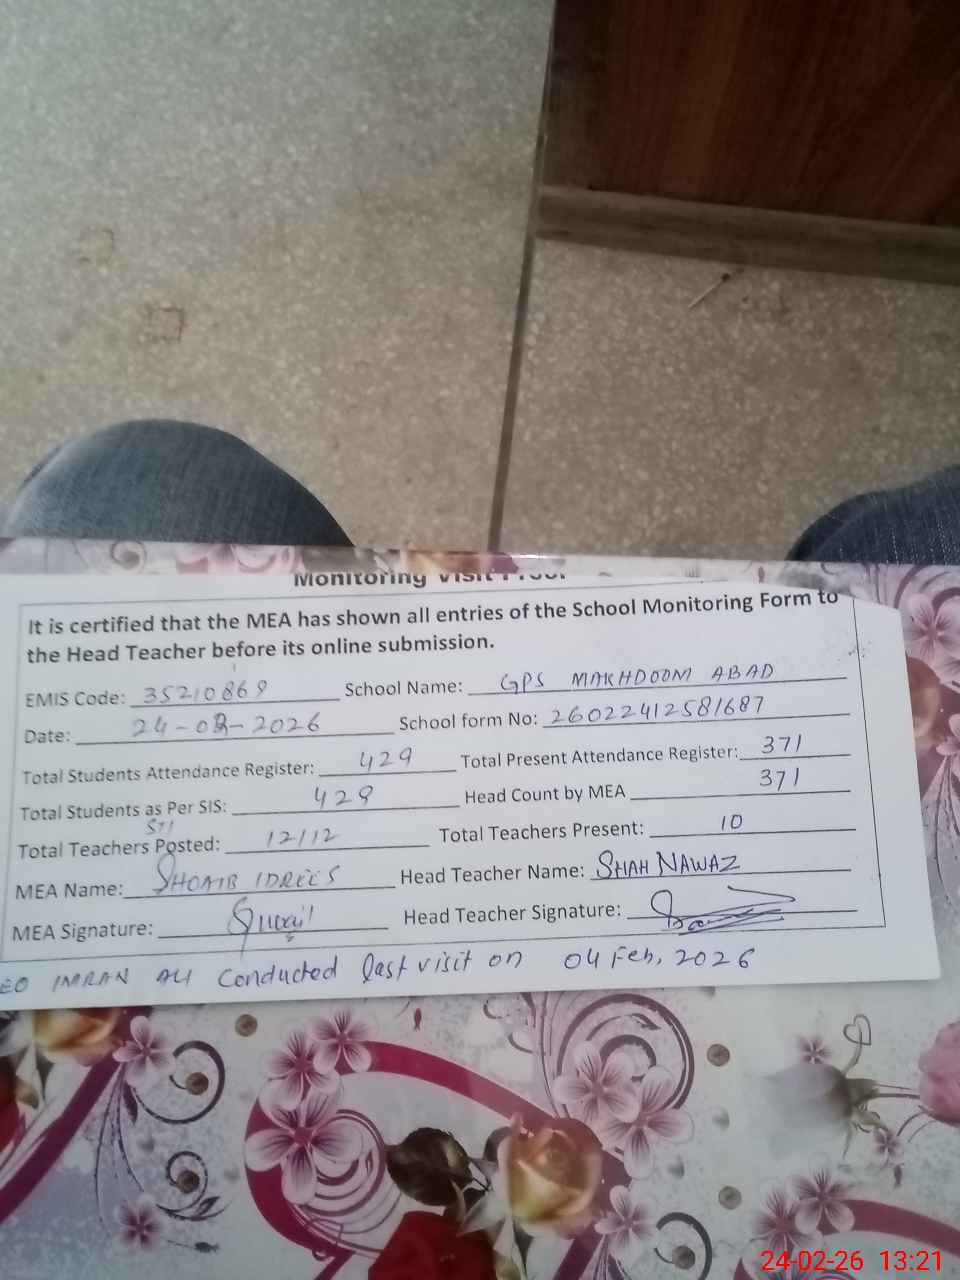 Monitoring Visit Proof
It is certified that the MEA has shown all entries of the School Monitoring Form to
the Head Teacher before its online submission.
EMIS Code: 35210869 School Name: GPS MAKHDOOM ABAD
Date: 24-02-2026 School form No: 26022412581687
Total Students Attendance Register: 429 Total Present Attendance Register: 371
Total Students as Per SIS: 429 Head Count by MEA 371
STI
Total Teachers Posted: 12/12 Total Teachers Present: 10
MEA Name: SHOAIB IDREES Head Teacher Name: SHAH NAWAZ
MEA Signature: Head Teacher Signature:
EO IMRAN ALI Conducted last visit on 04 Feb, 2026
24-02-26 13:21